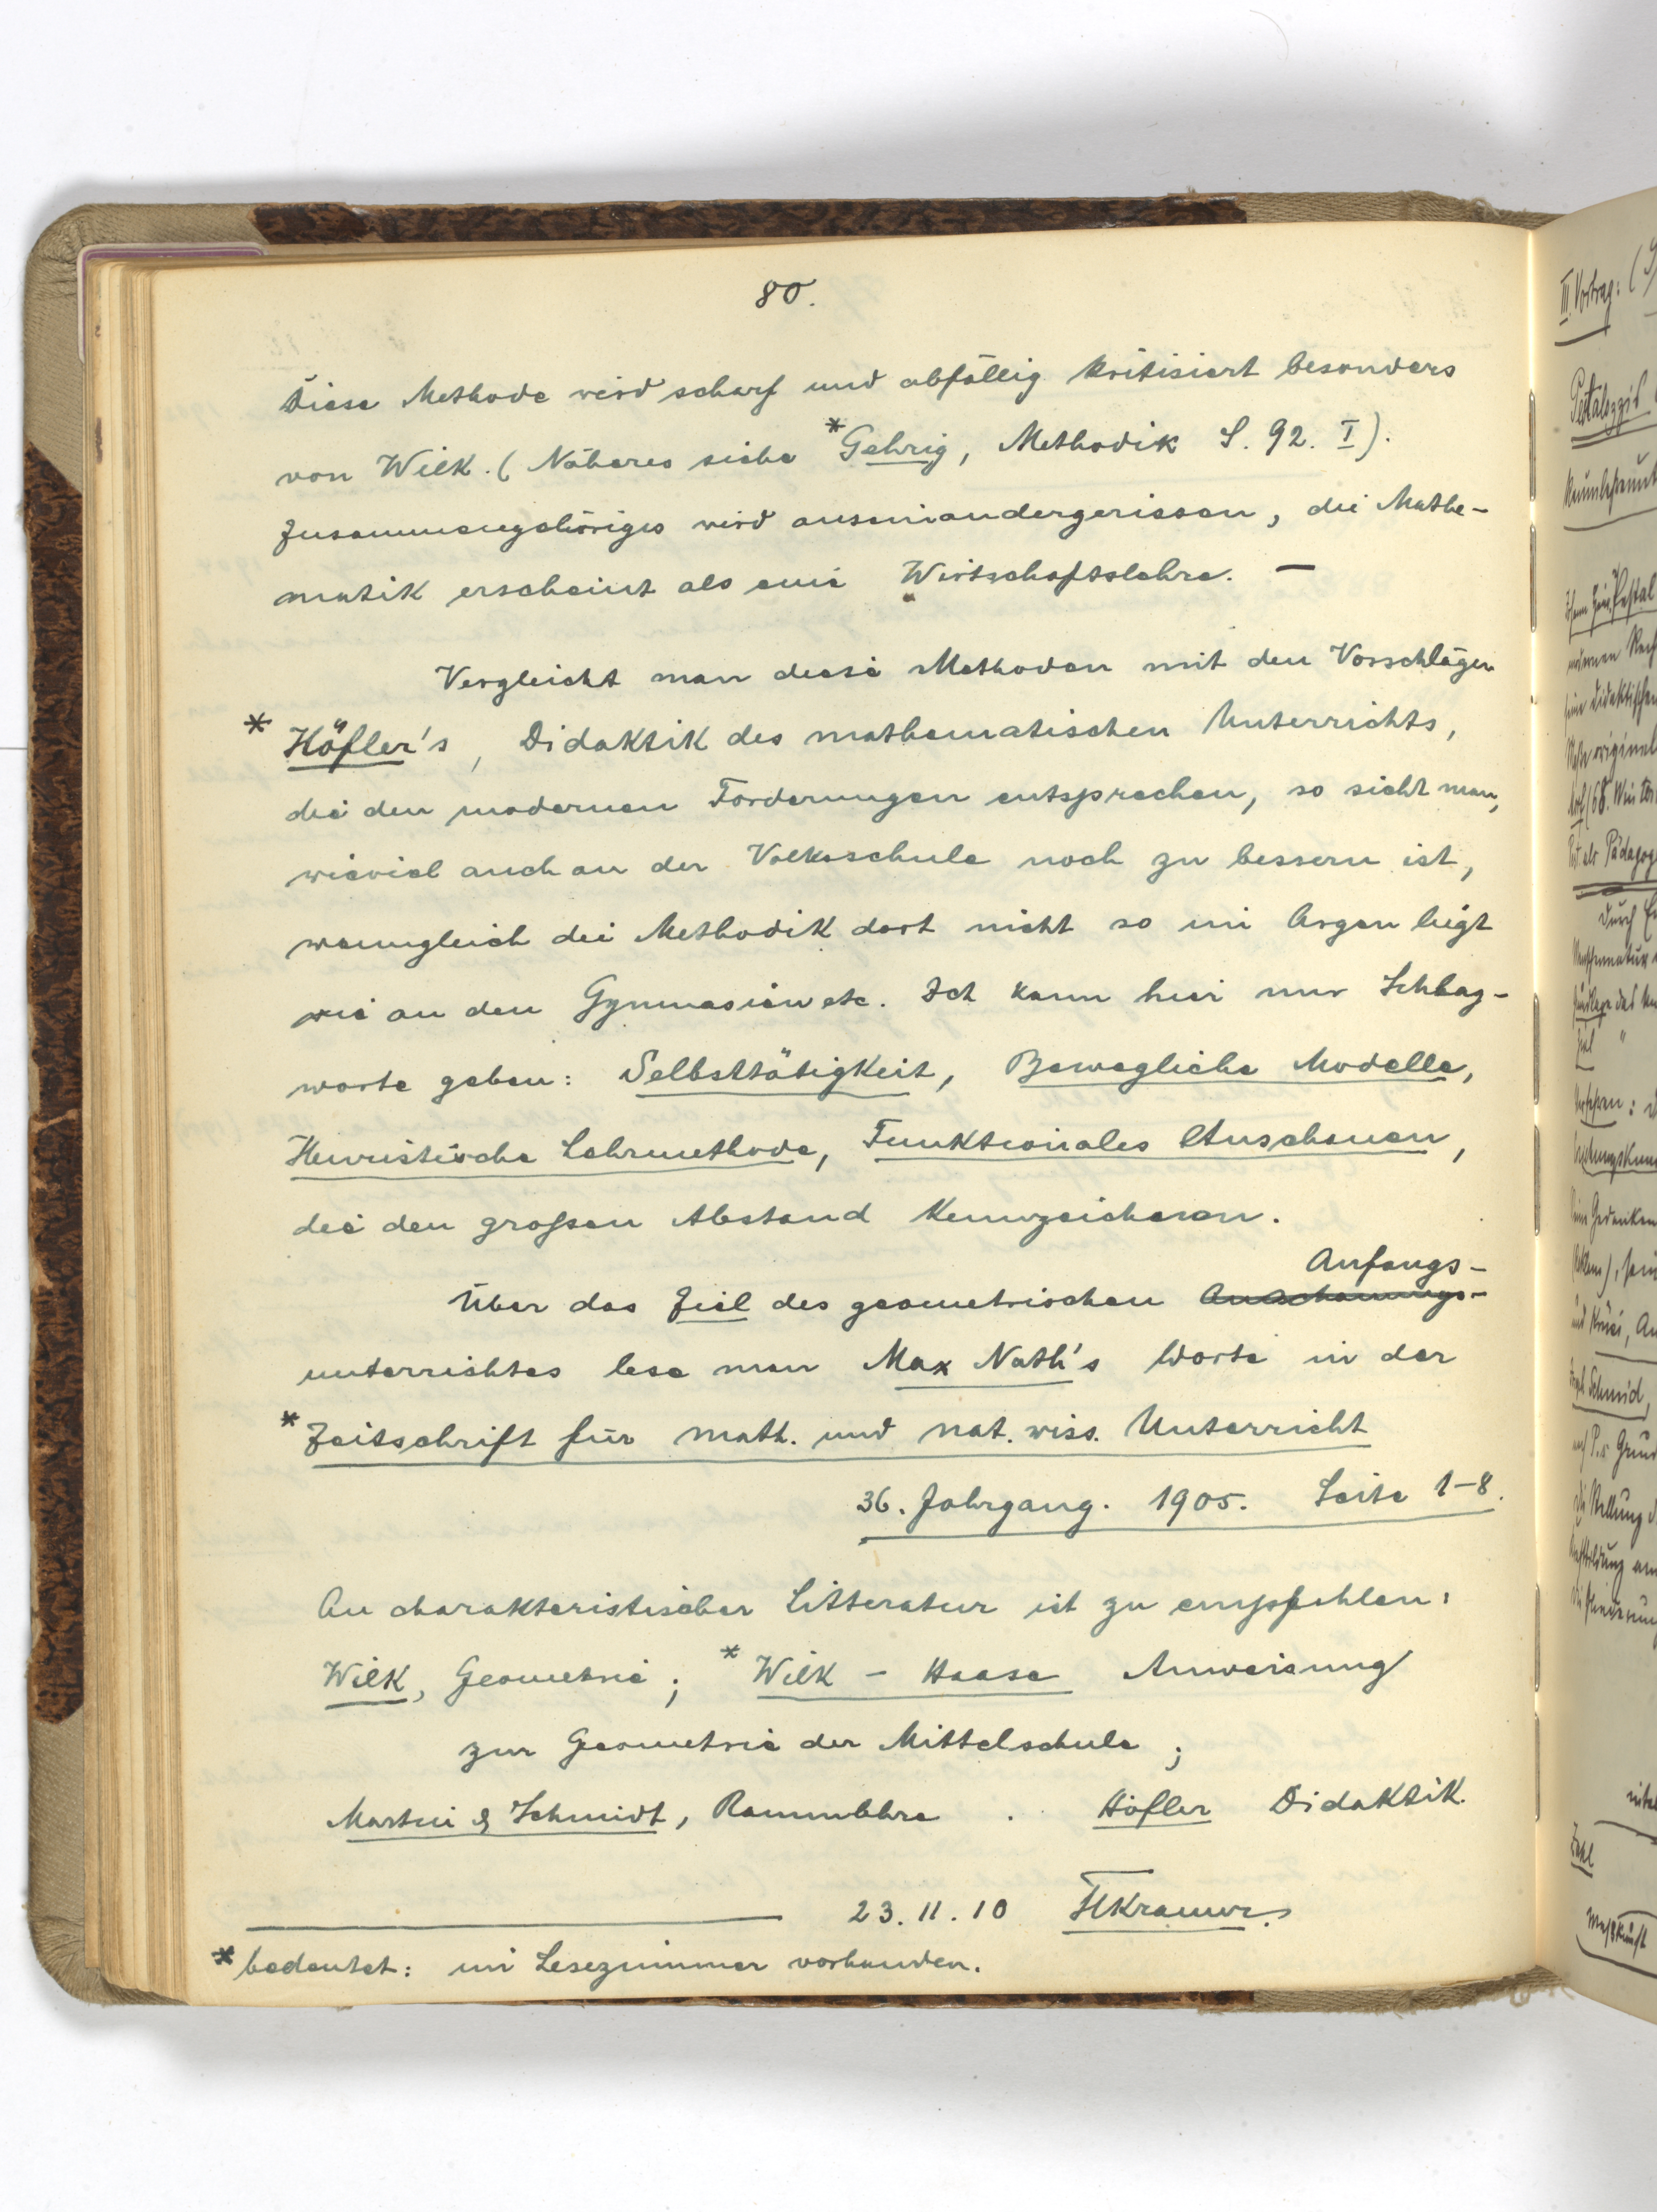 80.
Diese Methode wird scharf und abfällig kritisiert besonders
von Wilk. (Näheres siehe *Gehrig, Methodik S. 92. I).
Zusammengehöriges wird auseinandergerissen, die Mathe-
matik erscheint als eine Wirtschaftslehre. —
Vergleicht man diese Methoden mit den Vorschlägen
* Höfler's, Didaktik des mathematischen Unterrichts,
die den modernen Forderungen entsprechen, so sieht man,
wieviel auch an der Volksschule noch zu bessern ist,
wenngleich die Methodik dort nicht so im Argen liegt
wie an den Gymnasien etc. Ich kann hier nur Schlag-
worte geben: Selbsttätigkeit, Bewegliche Modelle,
Heuristische Lehrmethode, Funktionales Anschauen,
die den großen Abstand kennzeichnen.
Anfangs-
Über das Ziel des geometrischen Anschauungs-
unterrichtes lese man Max Nath's Worte in der
* Zeitschrift für math. und nat. wiss. Unterricht
36. Jahrgang. 1905. Seite 1-8.
An charakteristischer Litteratur ist zu empfehlen:
Wilk, Geometrie; *Wilk - Haase Anweisung
zur Geometrie der Mittelschule;
Martin & Schmidt, Raumlehre . Höfler Didaktik.
23. 11. 10 HKramer.
* bedeutet: im Lesezimmer vorhanden.
III. Vortrag: